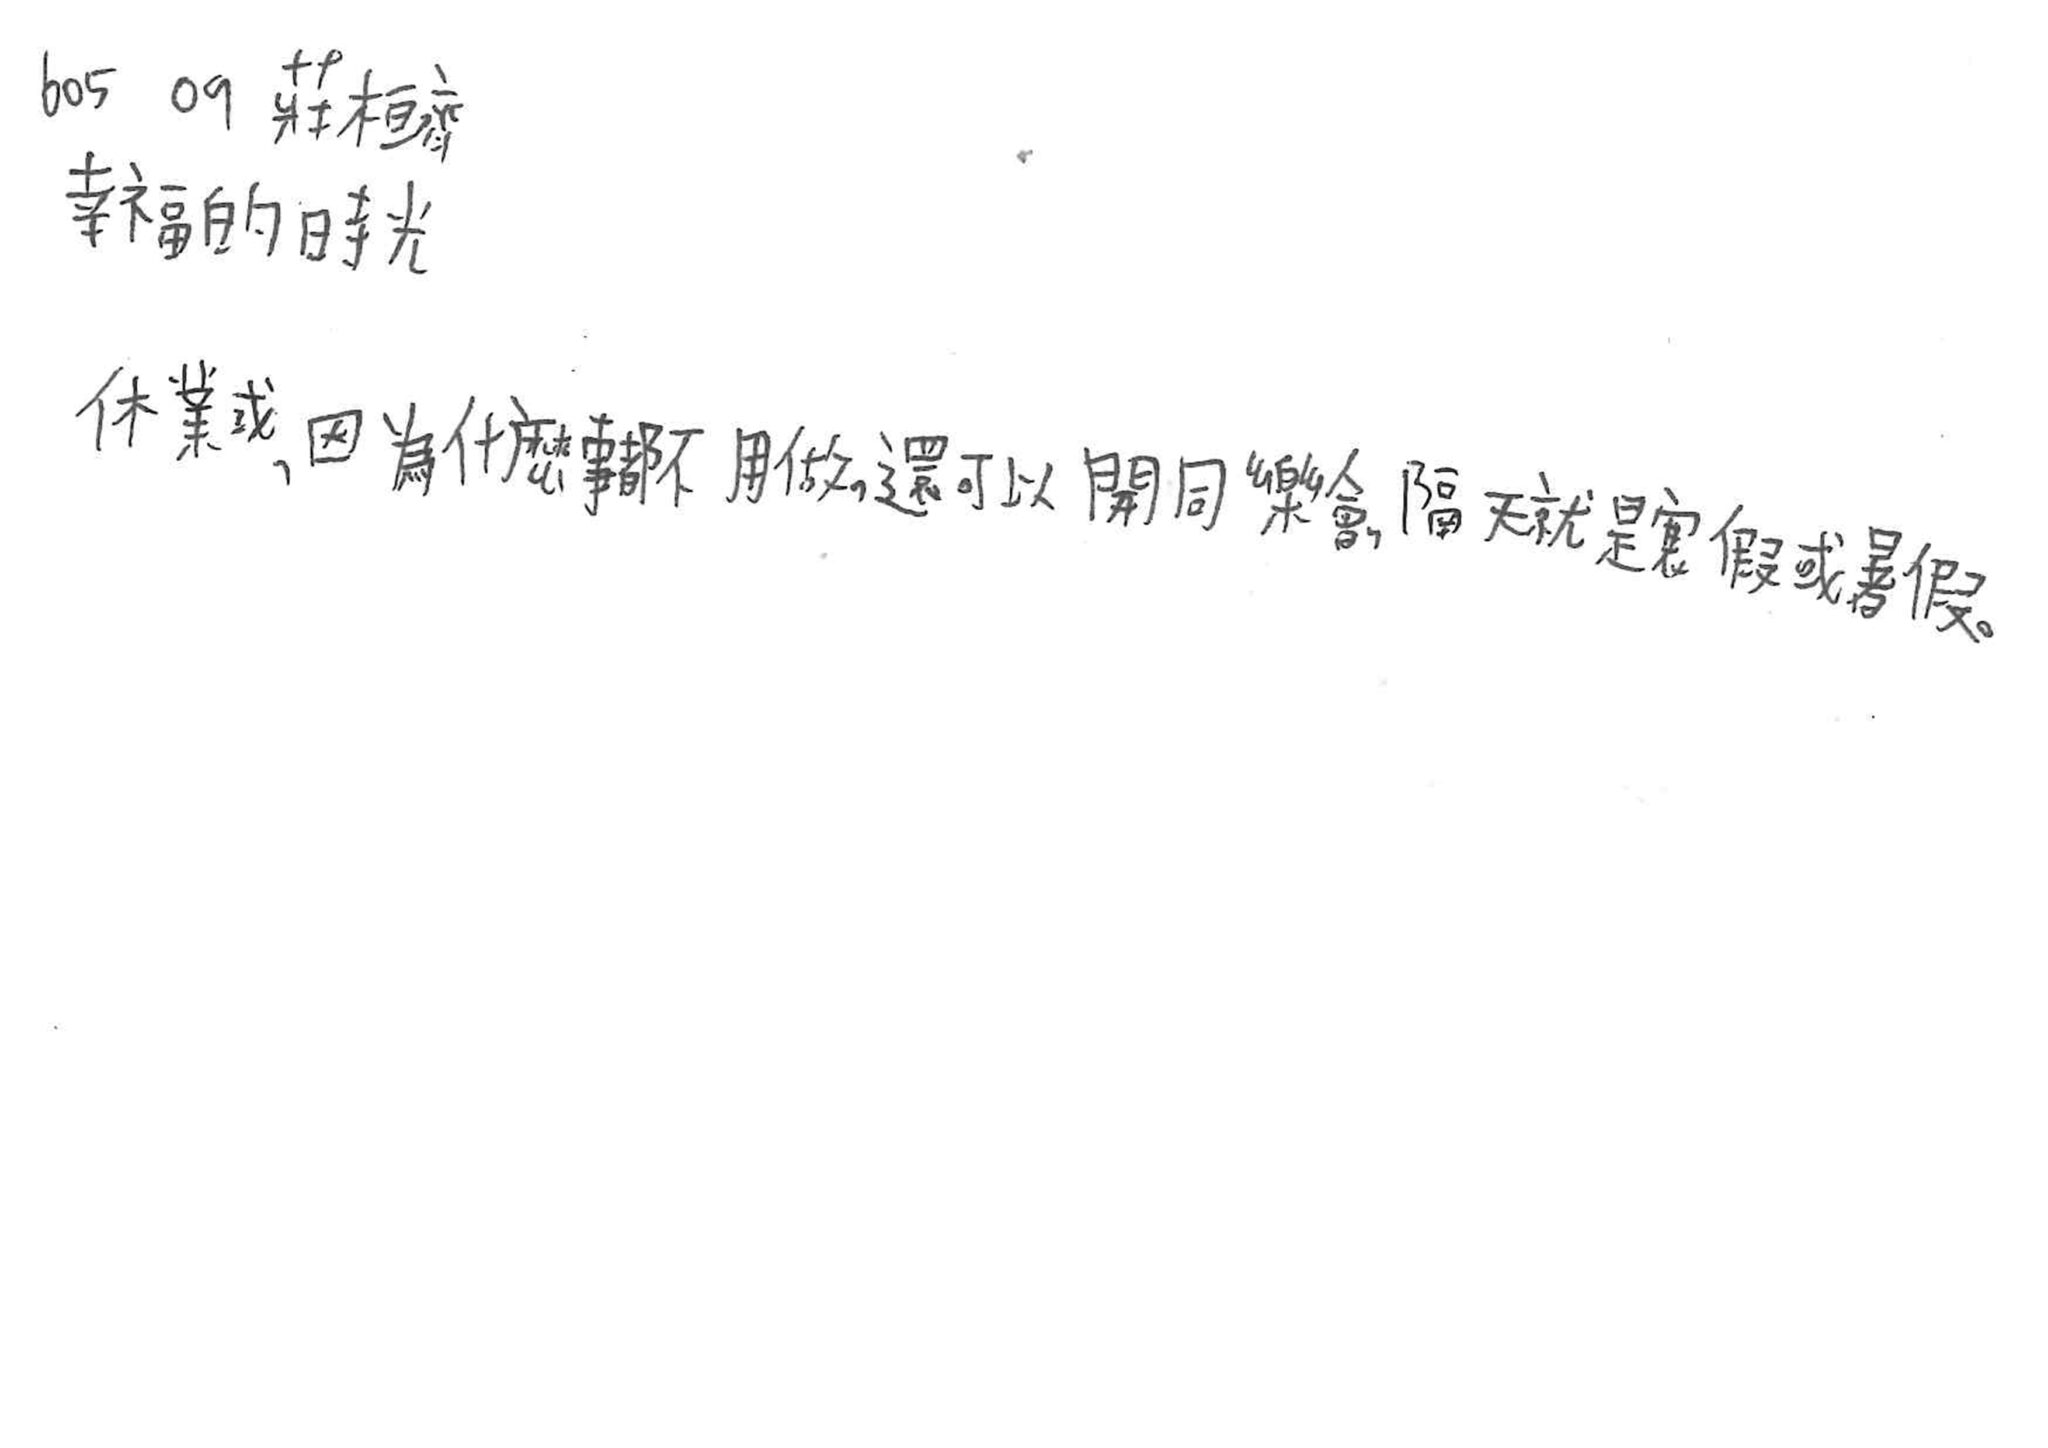 605 09 莊桓齊
幸福的時光
休業或,因為什麼事都不用做,還可以開同樂會,隔天就是寒假或暑假。